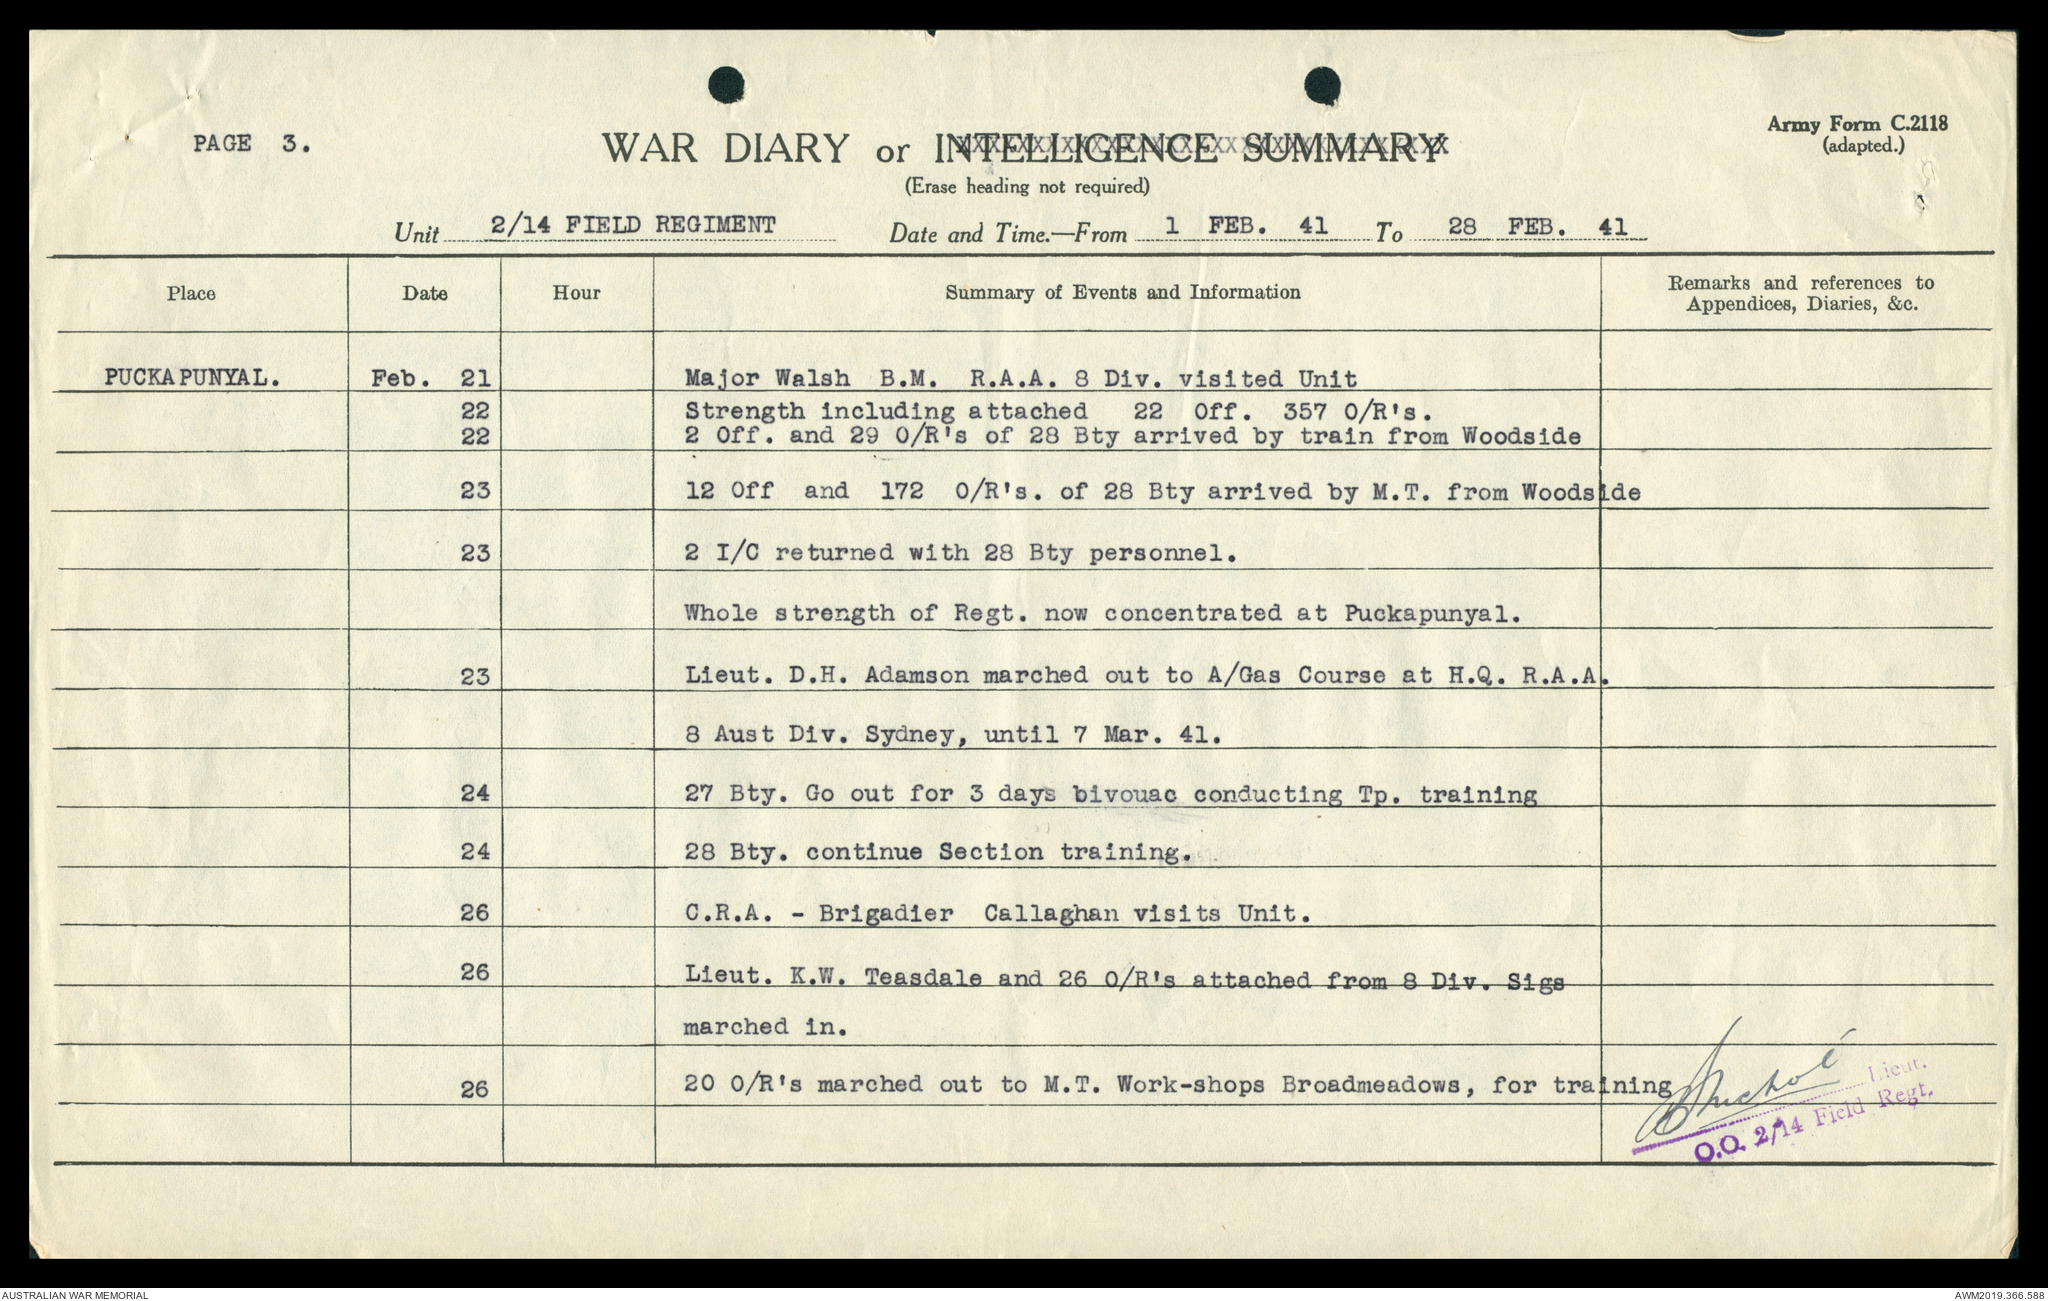 PAGE 3.
WAR DIARY or INTELLIGENCE SUMMARY
Army Form C.2118
(adapted.)
(Erase heading not required)
Unit 2/14 FIELD REGIMENT Date and Time.—From 1 FEB. 41 To 28 FEB. 41
Place Date Hour Summary of Events and Information Remarks and references to
Appendices, Diaries, &c.
PUCKAPUNYAL. Feb. 21 Major Walsh B.M. R.A.A. 8 Div. visited Unit
22 Strength including attached 22 Off. 357 O/R's.
22 2 Off. and 29 O/R's of 28 Bty arrived by train from Woodside
23 12 Off and 172 O/R's. of 28 Bty arrived by M.T. from Woodside
23 2 I/C returned with 28 Bty personnel.
Whole strength of Regt. now concentrated at Puckapunyal.
23 Lieut. D.H. Adamson marched out to A/Gas Course at H.Q. R.A.A.
8 Aust Div. Sydney, until 7 Mar. 41.
24 27 Bty. Go out for 3 days bivouac conducting Tp. training
24 28 Bty. continue Section training.
26 C.R.A. - Brigadier Callaghan visits Unit.
26 Lieut. K.W. Teasdale and 26 O/R's attached from 8 Div. Sigs
marched in.
26 20 O/R's marched out to M.T. Work-shops Broadmeadows, for training
Lieut.
O.O. 2/14 Field Regt.
AUSTRALIAN WAR MEMORIAL AWM2019.366.588